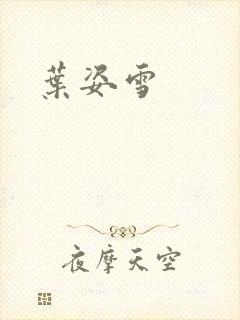 葉姿雪
夜摩天空